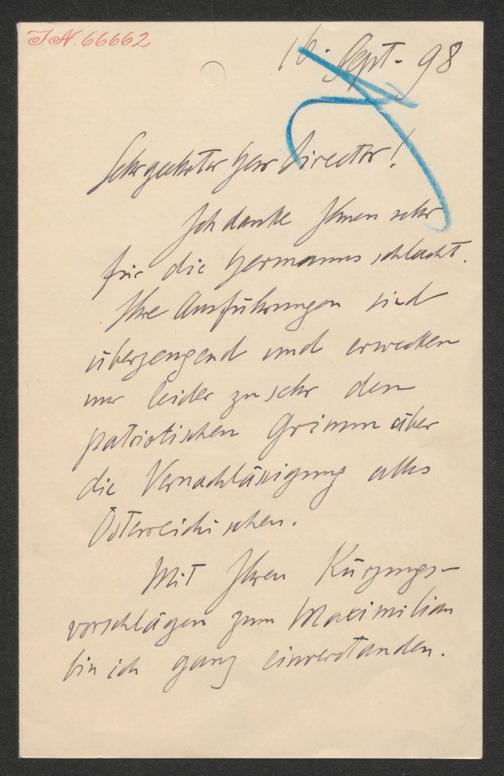 J.N. 66662
16. Sept. 98
Sehr geehrter Herr Director!
Ich danke Ihnen sehr
für die Hermannsschlacht.
Ihre Ausführungen sind
überzeugend und erwecken
nur leider zu sehr den
patriotischen Grimm über
die Vernachlässigung alles
Österreichischen.
Mit Ihren Kürzungs-
vorschlägen zum Maximilian
bin ich ganz einverstanden.